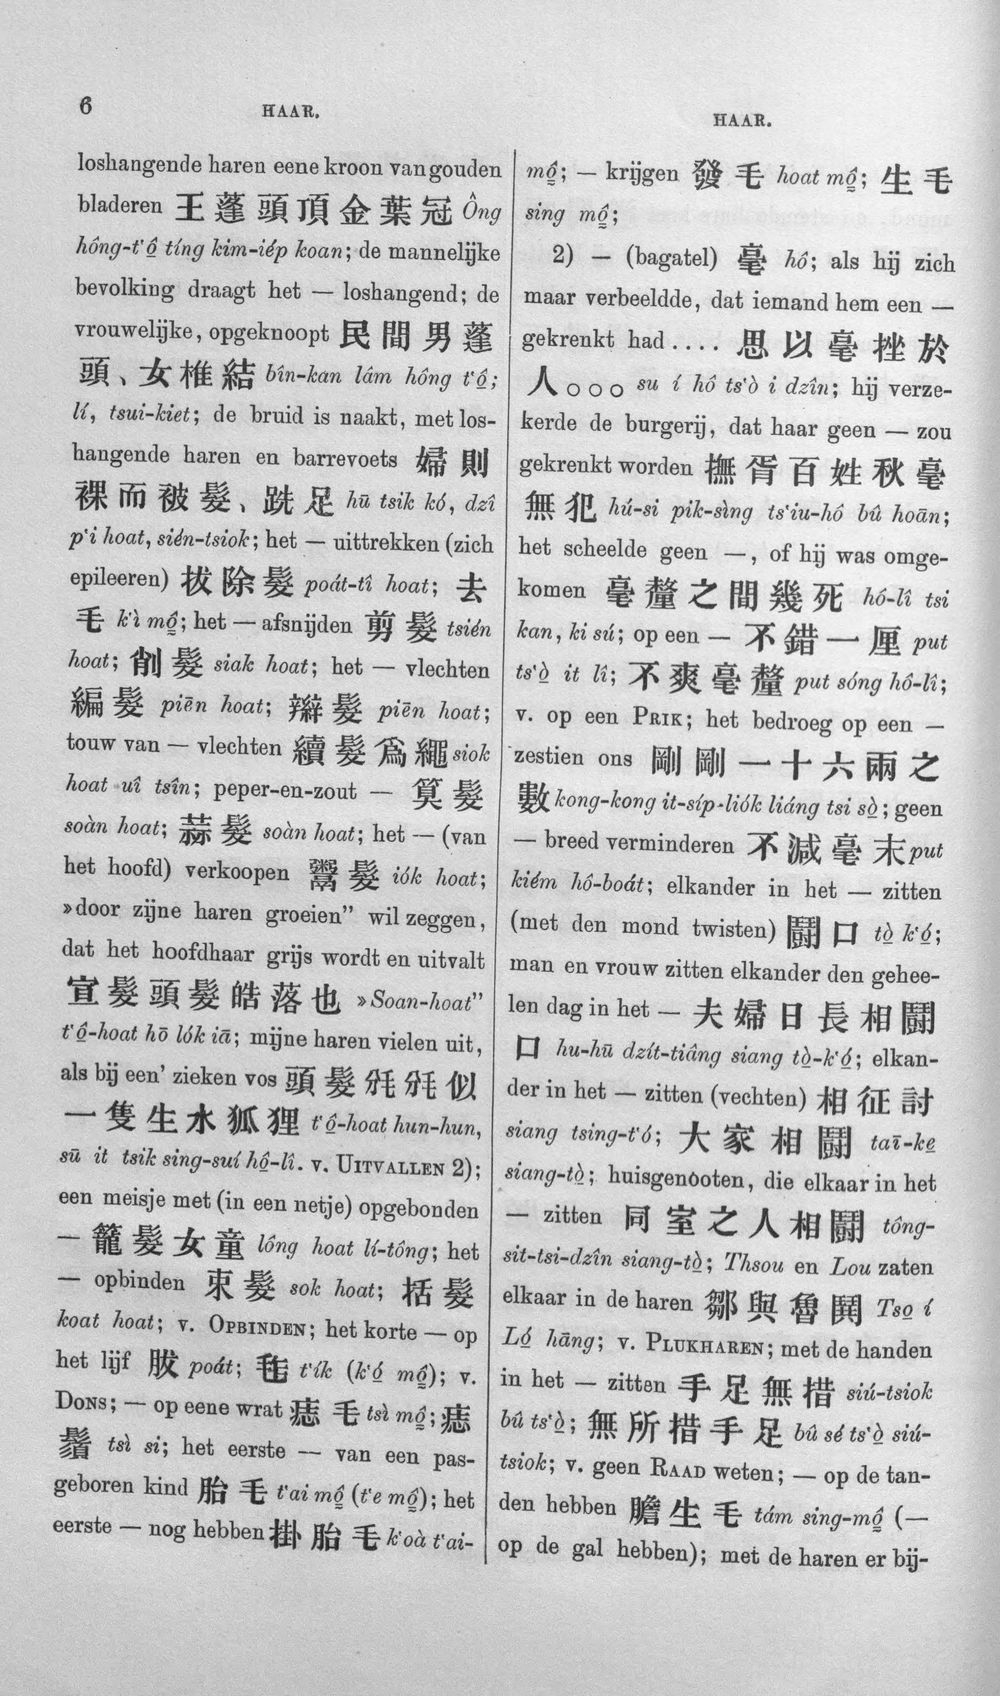 6
HAAR.
HAAR.
loshangende haren eene kroon van gouden
bladeren 王蓬頭頂金葉冠 Ông
hông-t‘ô̤ tíng kim-iép koan; de mannelijke
bevolking draagt het — loshangend; de
vrouwelijke, opgeknoopt 民間男蓬
頭、女椎結 bîn-kan lâm hông t‘ô̤;
lí, tsui-kiet; de bruid is naakt, met los-
hangende haren en barrevoets 婦則
裸而被髮、跣足 hū tsik kó, dzî
p‘i hoat, sién-tsiok; het — uittrekken (zich
epileeren) 拔除髮 poát-tî hoat; 去
毛 k‘ì mô̤; het — afsnijden 剪髮 tsién
hoat; 削髮 siak hoat; het — vlechten
編髮 piēn hoat; 辮髮 piēn hoat;
touw van — vlechten 續髮爲繩 siok
hoat uî tsîn; peper-en-zout — 筭髮
soàn hoat; 蒜髮 soàn hoat; het — (van
het hoofd) verkoopen 鬻髮 iók hoat;
»door zijne haren groeien” wil zeggen,
dat het hoofdhaar grijs wordt en uitvalt
宣髮頭髮皓落也 »Soan-hoat”
t‘ô̤-hoat hō lók iā; mijne haren vielen uit,
als bij een’ zieken vos 頭髮毿毿似
一隻生水狐狸 t‘ô̤-hoat hun-hun,
sū it tsik sing-suí hô̤-lî. v. UITVALLEN 2);
een meisje met (in een netje) opgebonden
— 籠髮女童 lông hoat lí-tông; het
— opbinden 束髮 sok hoat; 括髮
koat hoat; v. OPBINDEN; het korte — op
het lijf 胈 poát; 毛 t‘ík (k‘ó̤ mô̤); v.
DONS; — op eene wrat 痣毛 tsì mô̤; 痣
鬚 tsì si; het eerste — van een pas-
geboren kind 胎毛 t‘ai mô̤ (t‘e mô̤); het
eerste — nog hebben 掛胎毛 k‘oà t‘ai-
mô̤; — krijgen 發毛 hoat mô̤; 生毛
sing mô̤;
2) — (bagatel) 毫 hô; als hij zich
maar verbeeldde, dat iemand hem een —
gekrenkt had .... 思以毫挫於
人○○○ su í hô ts‘ò i dzîn; hij verze-
kerde de burgerij, dat haar geen — zou
gekrenkt worden 撫胥百姓秋毫
無犯 hú-si pik-sìng ts‘iu-hô bû hoān;
het scheelde geen —, of hij was omge-
komen 毫釐之間幾死 hó-lî tsi
kan, ki sú; op een — 不錯一厘 put
ts‘ò̤ it lî; 不爽毫釐 put sóng hô-lî;
v. op een PRIK; het bedroeg op een —
zestien ons 剛剛一十六兩之
數 kong-kong it-síp-liók liáng tsi sò̤; geen
— breed verminderen 不減毫末 put
kiém hô-boát; elkander in het — zitten
(met den mond twisten) 鬬口 tò̤ k‘ó̤;
man en vrouw zitten elkander den gehee-
len dag in het — 夫婦日長相鬬
口 hu-hū dzít-tiâng siang tò̤-k‘ó̤; elkan-
der in het — zitten (vechten) 相征討
siang tsing-t‘ó; 大家相鬬 taī-ke̤
siang-tò̤; huisgenooten, die elkaar in het
— zitten 同室之人相鬬 tông-
sit-tsi-dzîn siang-tò̤; Thsou en Lou zaten
elkaar in de haren 鄒與魯鬨 Tso̤ í
Ló̤ hāng; v. PLUKHAREN; met de handen
in het — zitten 手足無措 siú-tsiok
bû ts‘ò̤; 無所措手足 bû sé ts‘ò̤ siú-
tsiok; v. geen RAAD weten; — op de tan-
den hebben 膽生毛 tám sing-mô̤ (—
op de gal hebben); met de haren er bij-